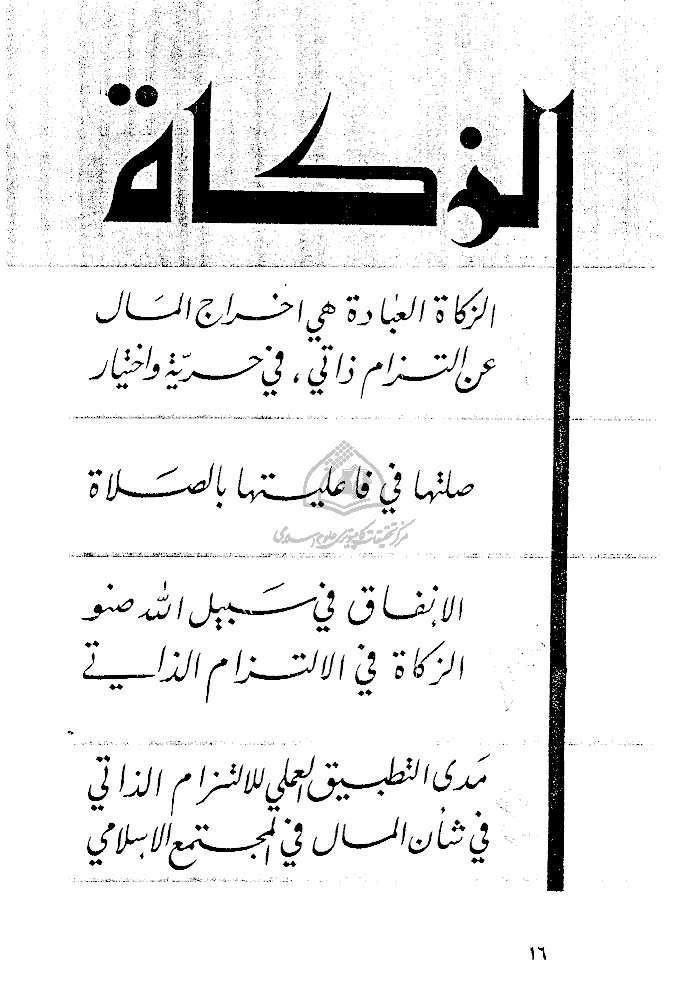 الزكاة
الزكاة العبادة هي اخراج المال
عن التزام ذاتي ، في حريّة واختيار
صلتها في فاعليتها بالصَلاة
مركز تحقیقات کامپیوتری علوم اسلامی
الإنفاق في سَبيل الله صنو
الزكاة في الالتزام الذاتي
مَدى التطبيق العملي للالتزام الذاتي
في شأن المال في المجتمع الإسلامي
١٦